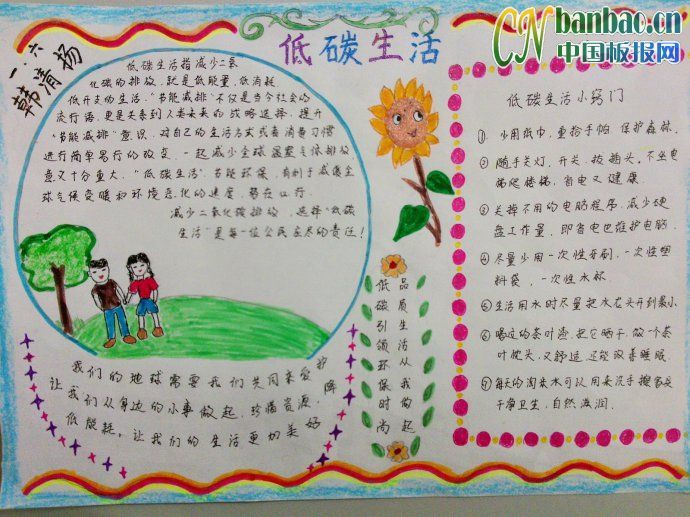 CN banbao.cn
中国板报网
低碳生活
一.六
韩清扬
低碳生活指减少二氧
化碳的排放,就是低能量,低消耗
低开支的生活,"节能减排"不仅是当今社会的
流行语,更是关系到人类未来的战略选择,提升
"节能减排"意识,对自己的生活方式或者消费习惯
进行简单易行的改变,一起减少全球温室气体排放
意义十分重大,"低碳生活"节能环保,有利于减缓全
球气候变暖和环境恶化的速度,势在必行.
减少二氧化碳排放,选择"低碳
生活"是每一位公民应尽的责任!
我们的地球需要我们共同来爱护
让我们从身边的小事做起,珍惜资源,降
低能耗,让我们的生活更加美好
品质生活从我们做起
低碳引领环保时尚
低碳生活小窍门
① 少用纸巾,重拾手帕,保护森林.
② 随手关灯、开关、拔插头,不坐电
梯爬楼梯,省电又健康.
③ 关掉不用的电脑程序,减少硬
盘工作量,即省电也维护电脑.
④ 尽量少用一次性牙刷,一次性塑
料袋,一次性水杯.
⑤ 生活用水时尽量把水龙头开到最小.
⑥ 喝过的茶叶渣,把它晒干,做一个茶
叶枕头,又舒适,还能改善睡眠.
⑦ 每天的淘米水可以用来洗手擦家具
干净卫生,自然滋润.